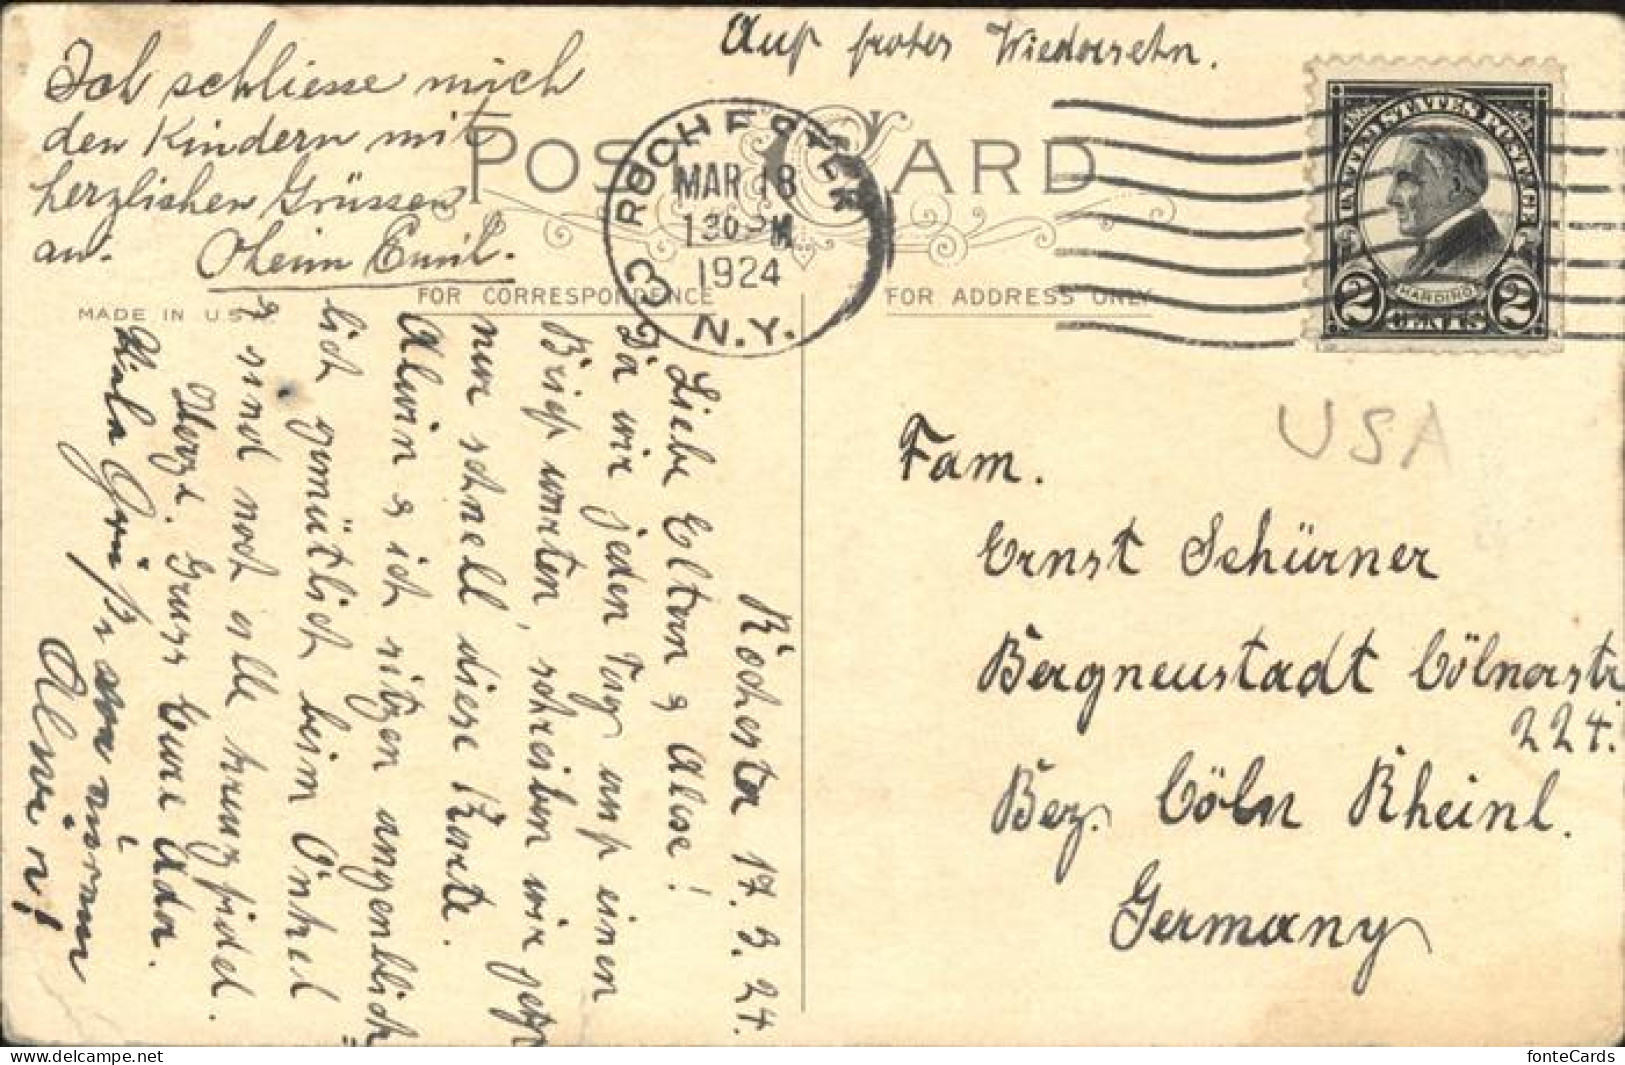 Auf frohes Wiedersehn.
Ich schliesse mich
den Kindern mit
herzlichen Grüssen
an. Oheim Emil.
POST CARD
ROCHESTER
MAR 18
130 PM
1924
N.Y.
UNITED STATES POSTAGE
HARDING
2 CENTS 2
MADE IN U.S.A.
FOR CORRESPONDENCE
FOR ADDRESS ONLY
USA
Rochester 17. 3. 24.
Liebe Eltern & Aluse!
Da wir jeden Tag auf einen
Brief warten, schreiben wir jetzt
nur schnell diese Karte.
Alwin & ich sitzen augenblick=
lich gemütlich beim Onkel
& sind noch alle kreuzfidel
Gruss Eure Ada.
Viele Grüße von eurem
Alwin!
Fam.
Ernst Schürner
Bergneustadt Cölnerstr
224.
Bez. Cöln Rheinl.
Germany
fonteCards